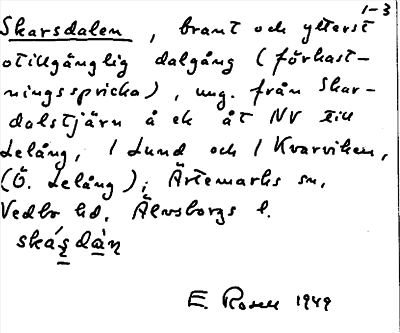 1-3
Skarsdalen, brant och ytterst
otillgänglig dalgång (förkast-
ningsspricka), ung. från Skar-
dalstjärn å ek åt NV till
Lelång, / Lund och / Kvarviken,
(Ö. Lelång); Ärtemarks sn,
Vedbo hd, Älvsborgs l.
E. Rosell 1949